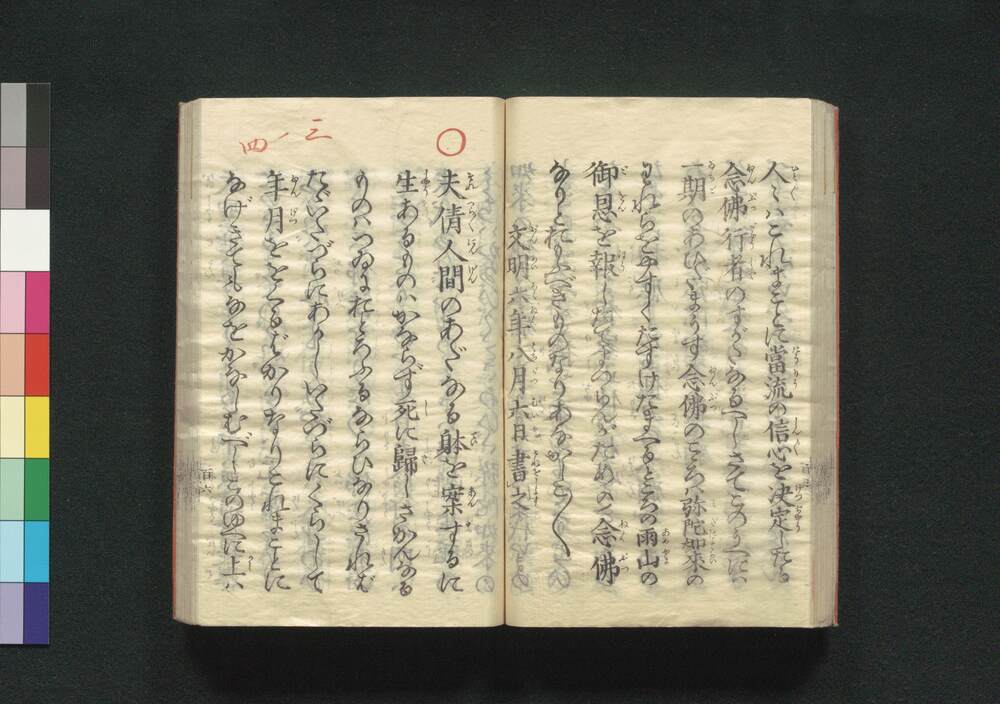 人〻ハこれまことに當流の信心を决定したる
念佛行者のすがたなるべしさてこのうへにハ
一期のあひだまうす念佛のこゝろハ弥陀如來の
われらをやすくたすけたまへるところの雨山の
御恩を報じたてまつらんがための念佛
なりとおもふべきものなりあなかしこ〳〵
文明六年八月六日書之
三ノ四
○
夫倩人間のあだなる躰を案ずるに
生あるものハかならず死に歸しさかんなる
ものハつゐにおとろふるならひなりされば
たゞいたづらにあかしいたづらにくらして
年月ををくるばかりなりこれまことに
なげきてもなをかなしむべしこのゆへに上ハ
百六